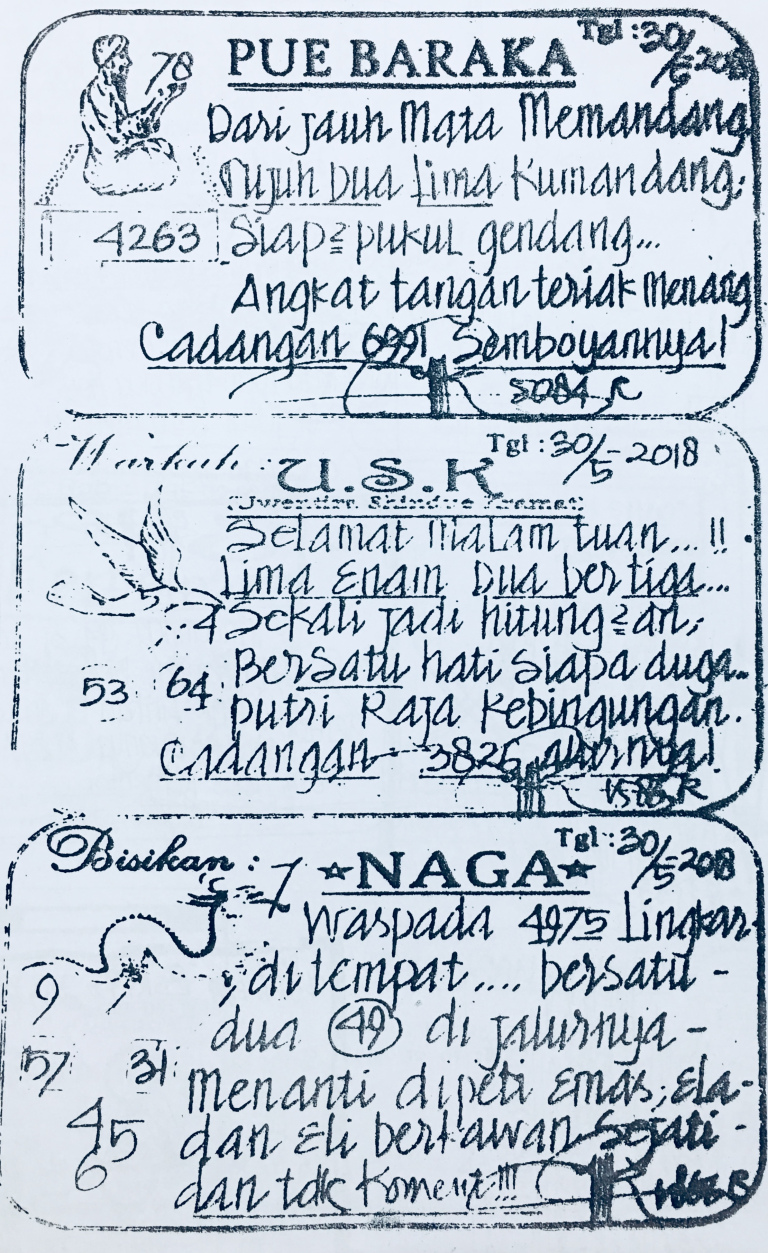 PUE BARAKA Tgl : 30/5-2018
78
Dari jauh Mata Memandang
Tujuh Dua Lima Kumandang;
4263
Siap² pukul gendang...
Angkat tangan teriak menang
Cadangan 6991 Semboyannya!
5084 R
Tgl : 30/5-2018
U.S.K
Selamat malam tuan...!!
Lima Enam Dua bertiga...
4
Sekali jadi hitung²an,
53 64
Bersatu hati siapa duga..
putri Raja Kebingungan.
Cadangan 3826 alurnya!
Bisikan : ★NAGA★ Tgl : 30/5-2018
7
Waspada 4975 Lingkar
, di tempat.... bersatu -
9
dua 49 di jalurnya -
57 31
Menanti dipeti Emas, Ela-
45
dan Eli berkawan Sejati -
6
dan tdk Koment!!!